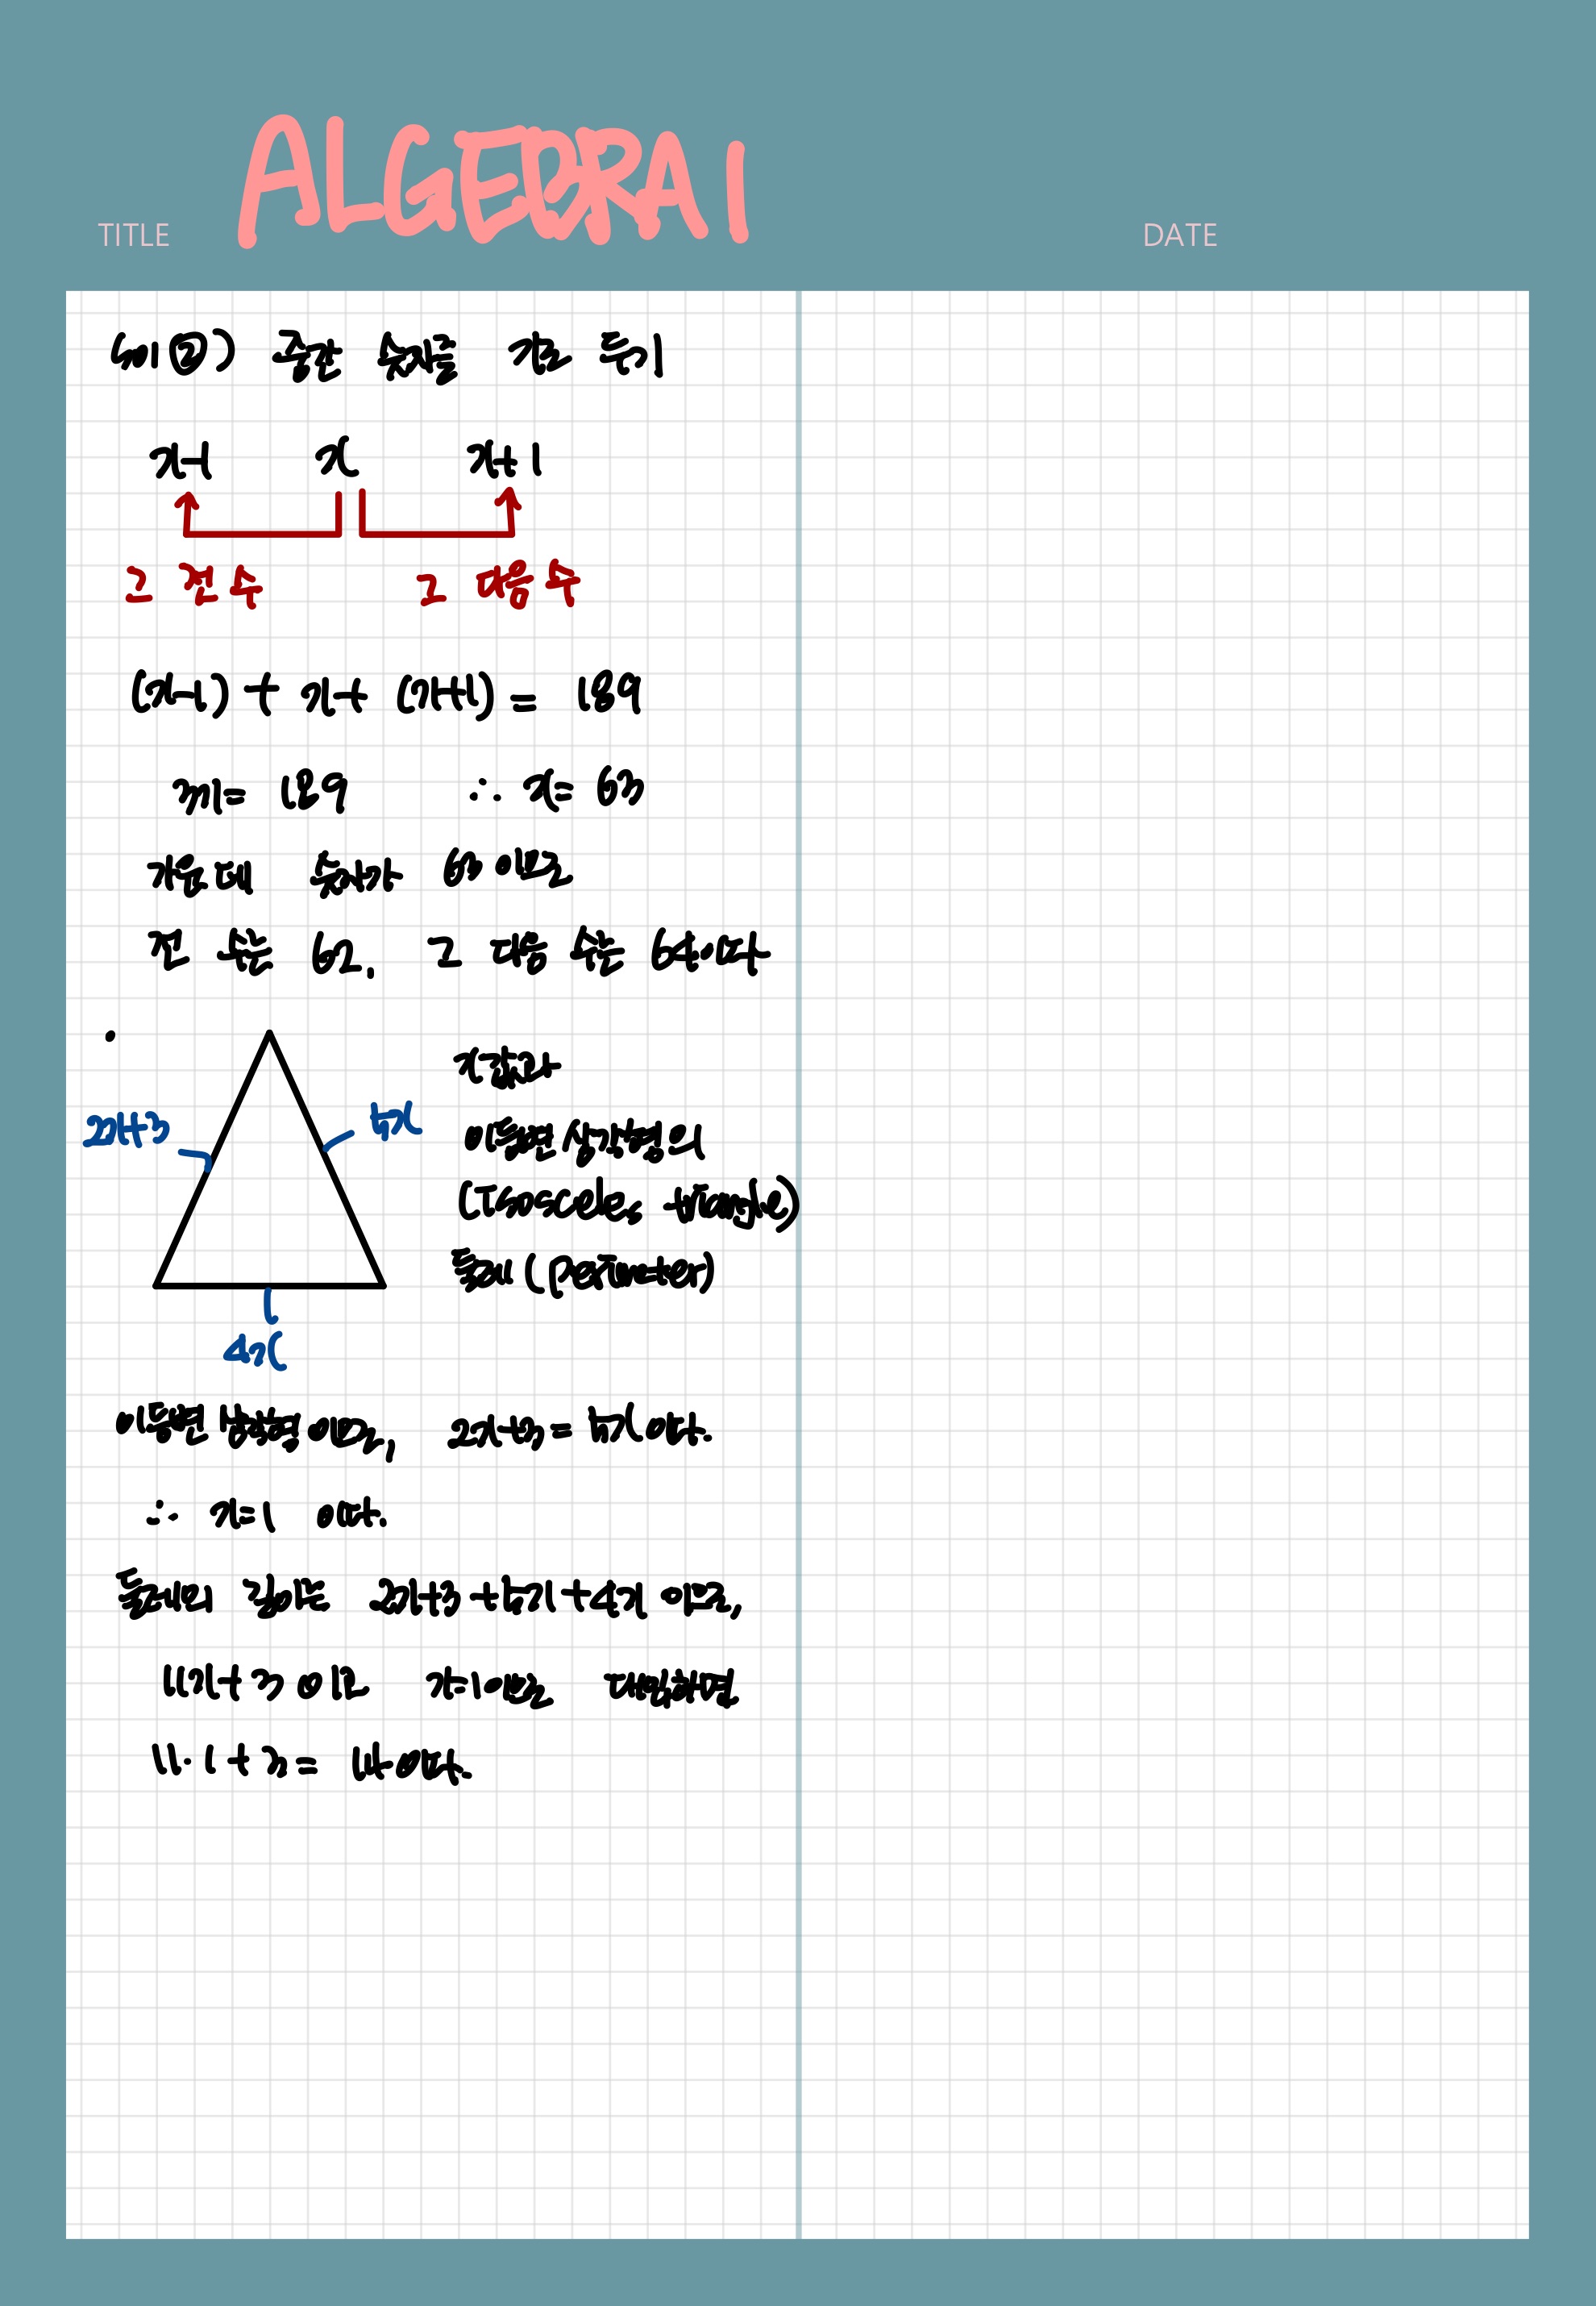 ALGEBRA 1
TITLE
DATE
sol②) 중간 숫자를 x로 두기
x-1 x x+1
그 전 수 그 다음 수
(x-1) + x + (x+1) = 189
3x = 189 ∴ x = 63
가운데 숫자가 63이므로
전 수는 62, 그 다음 수는 64이다
2x+3
5x
4x
x값과
이등변 삼각형의
(Isosceles triangle)
둘레 (perimeter)
이등변 삼각형이므로, 2x+3 = 5x이다.
∴ x=1 이다.
둘레의 길이는 2x+3+5x+4x 이므로,
11x+3이고 x=1이므로 대입하면
11·1+3 = 14이다.